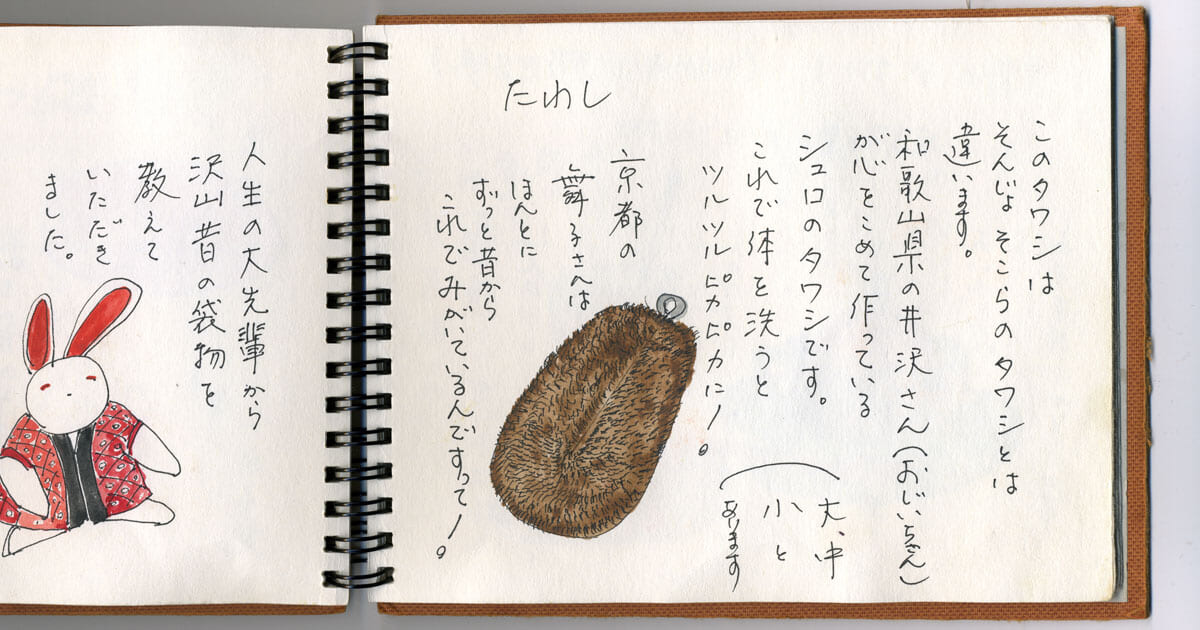 たわし
このタワシは
そんじょそこらのタワシとは
違います。
和歌山県の井沢さん(おじいちゃん)
が心をこめて作っている
シュロのタワシです。
これで体を洗うと
ツルツルピカピカに!。
(大、中
小と
あります
京都の
舞子さんは
ほんとに
ずっと昔から
これでみがいているんですって!。
人生の大先輩から
沢山昔の袋物を
教えて
いただき
ました。